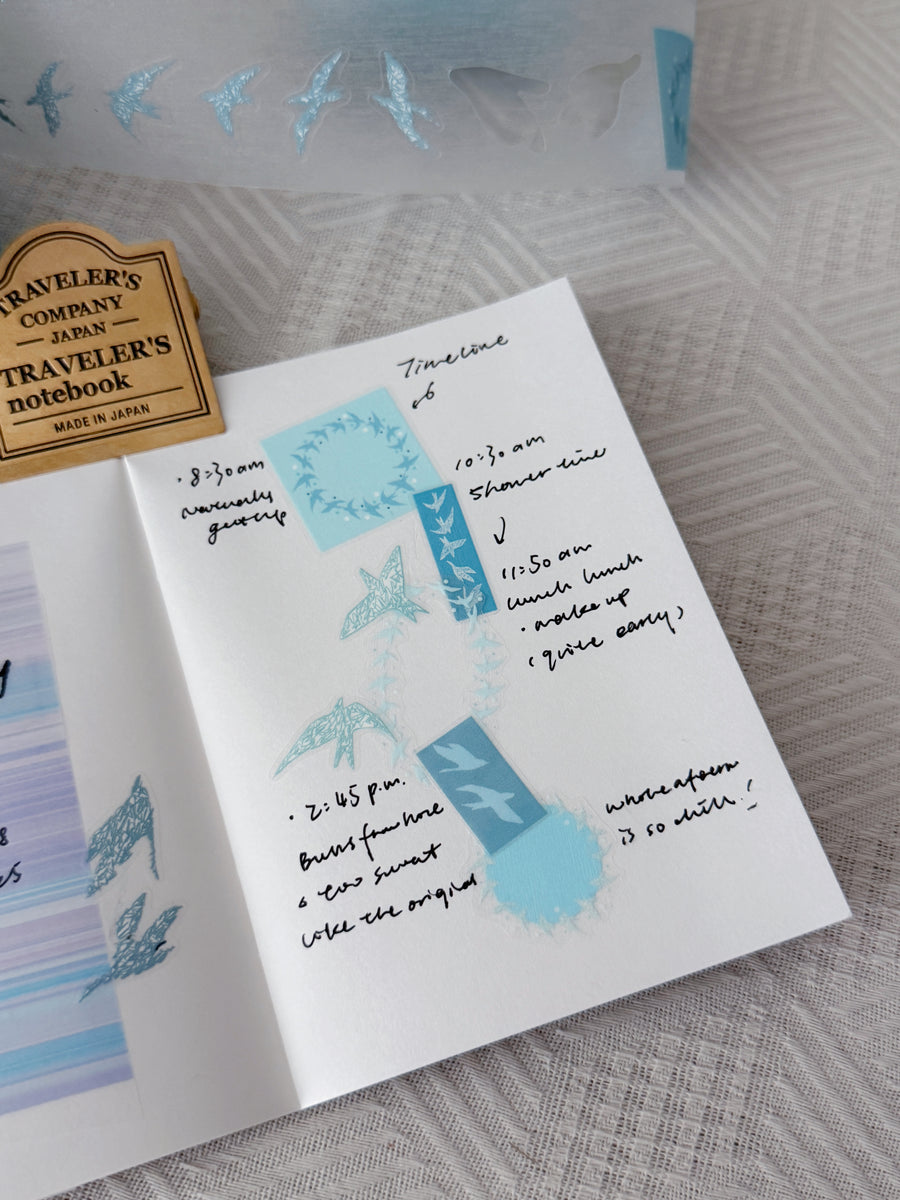 TRAVELER'S
COMPANY
JAPAN
TRAVELER'S
notebook
MADE IN JAPAN
Timeline
· 8:30 am
normally
get up
10:30 am
Shower time
11:50 am
lunch lunch
· make up
(quite early)
· 2:45 p.m.
Buns from
too sweat
like the original
whole afternn
is so chill!
8